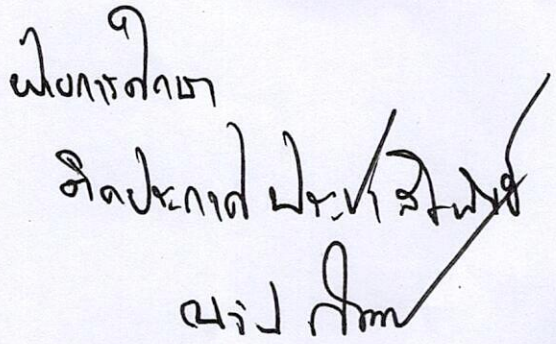 ฝ่ายการศึกษา
ติดประกาศ ประชาสัมพันธ์